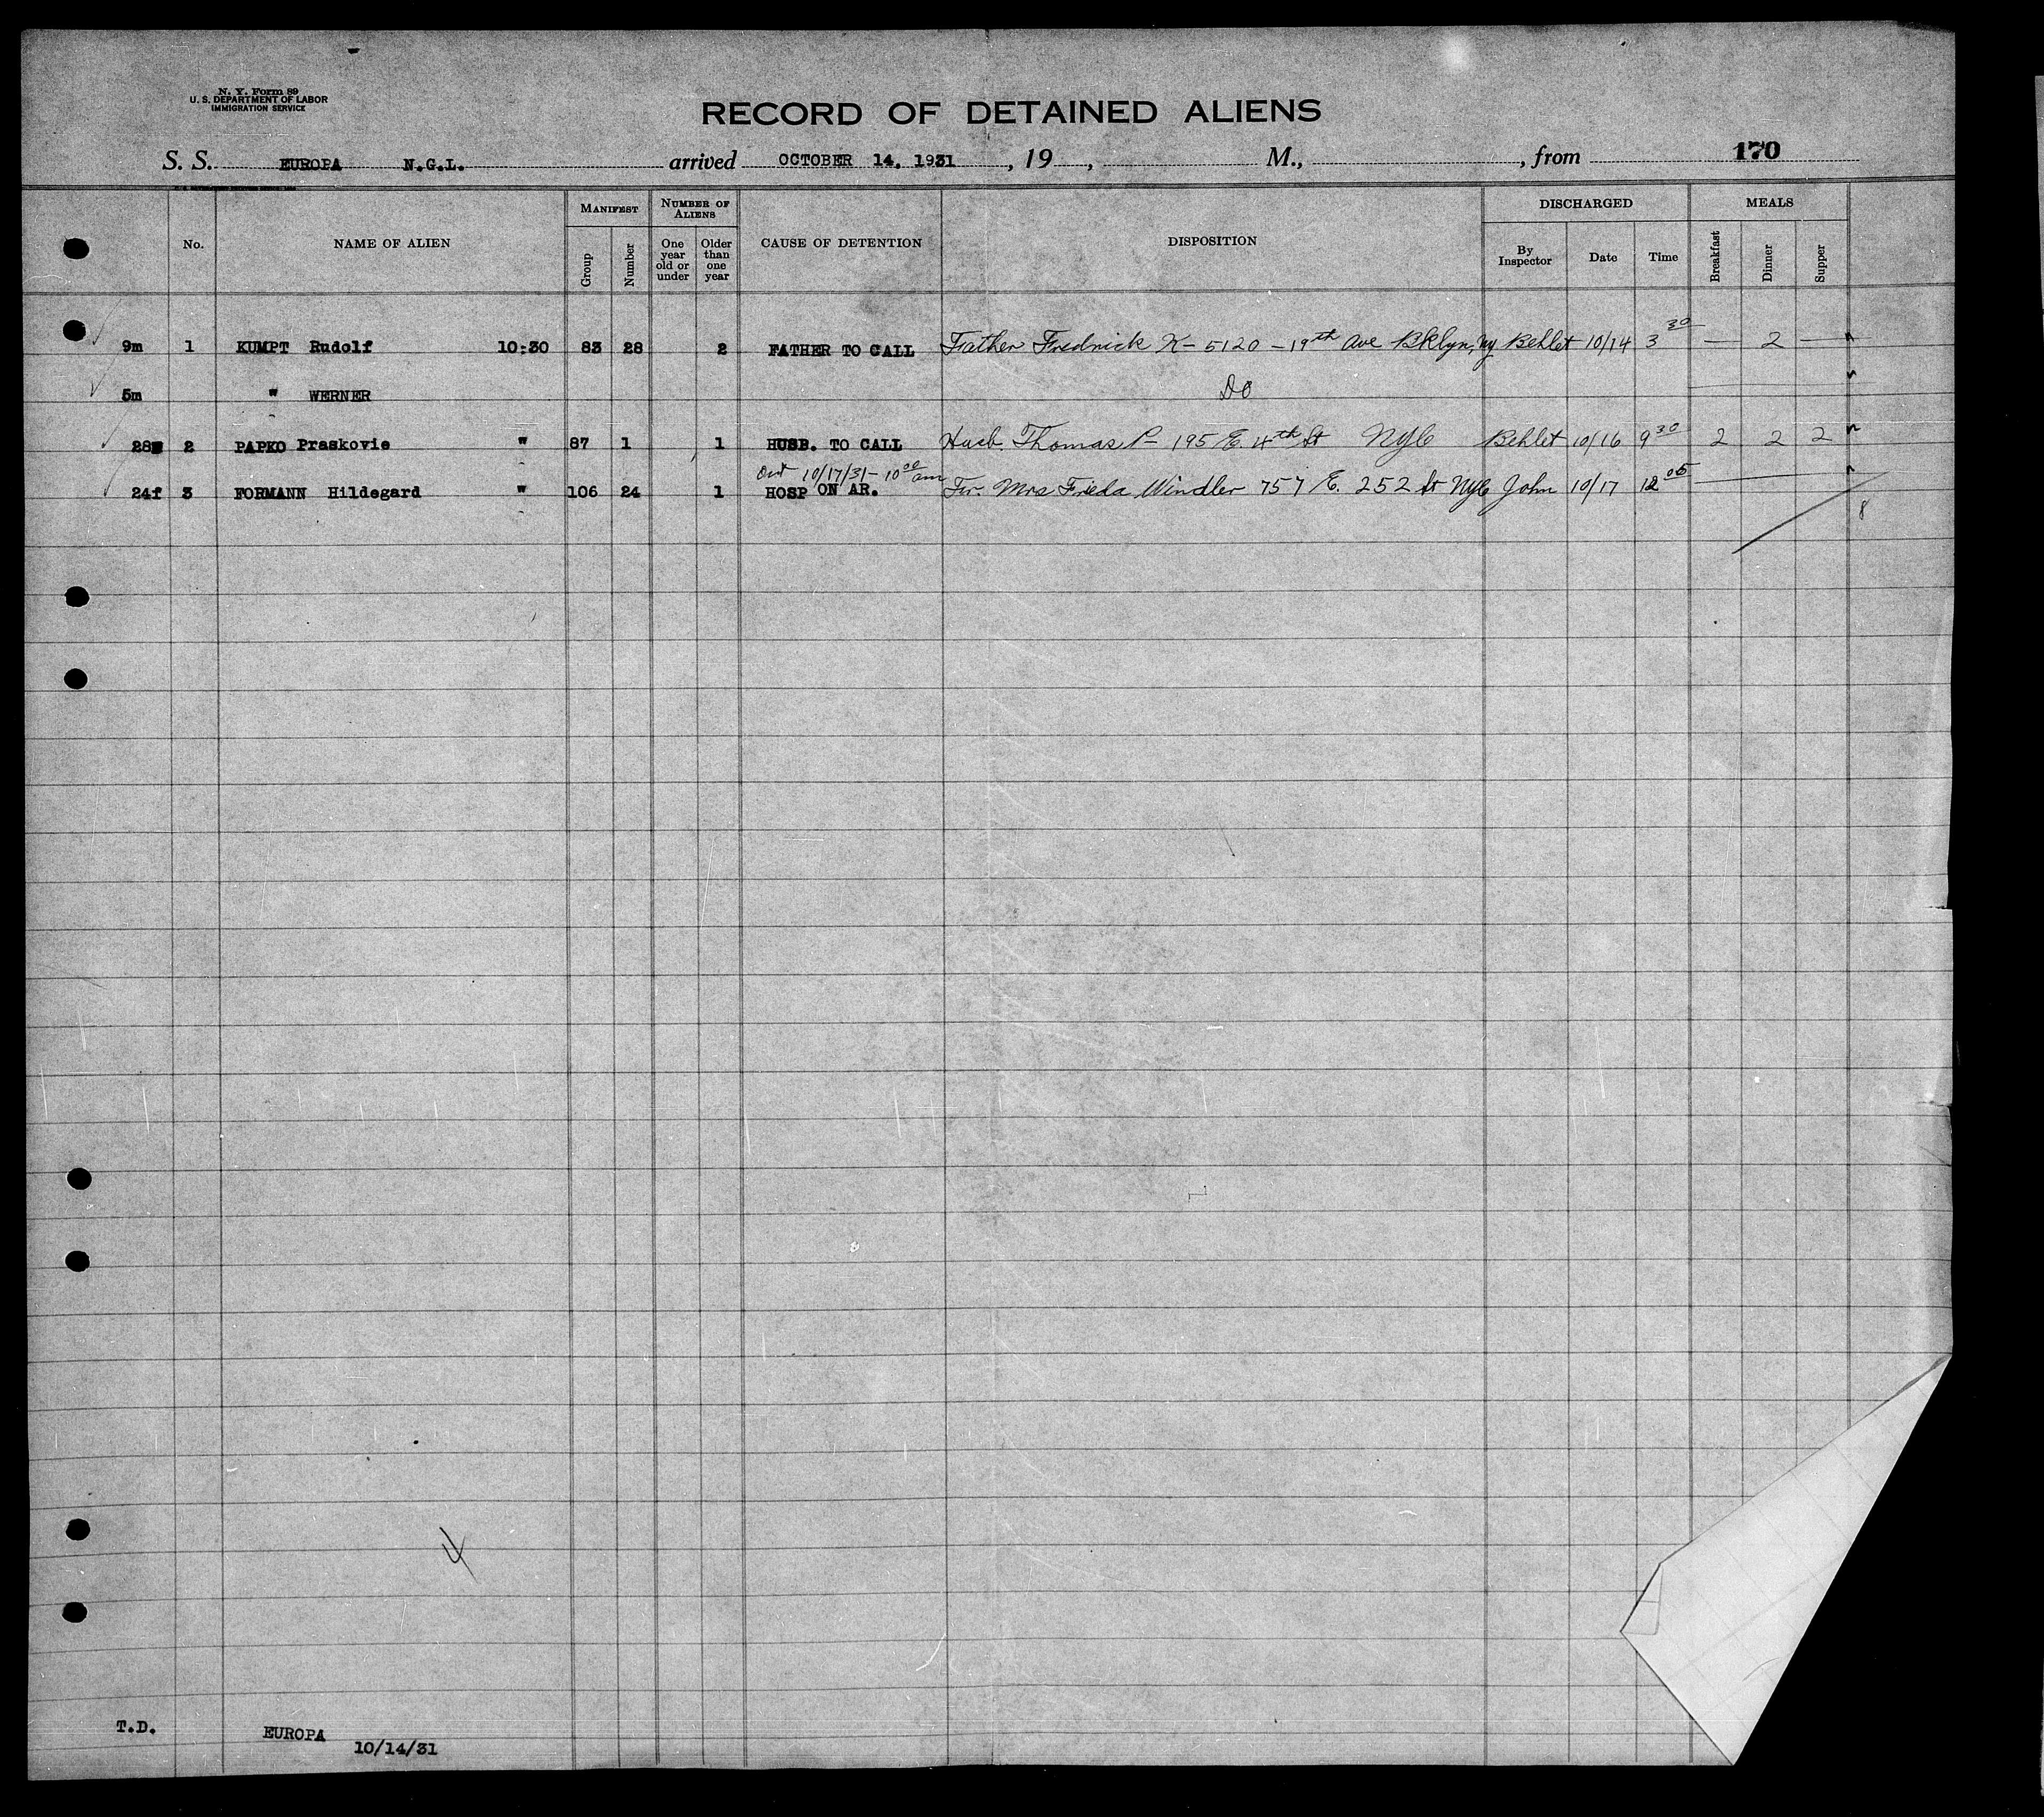 N. Y. Form 89
U. S. DEPARTMENT OF LABOR
IMMIGRATION SERVICE
RECORD OF DETAINED ALIENS
S. S. EUROPA N.G.L. arrived OCTOBER 14, 1931, 19 , M., , from 170
No. NAME OF ALIEN MANIFEST Group Number NUMBER OF ALIENS One year old or under Older than one year CAUSE OF DETENTION DISPOSITION DISCHARGED By Inspector Date Time MEALS Breakfast Dinner Supper
9m 1 KUMPT Rudolf 10:30 83 28 2 FATHER TO CALL Father Fredrick K- 5120 - 19th Ave Bklyn, Ny Behlet 10/14 3 30 — 2 —
5m " WERNER Do
28 2 PAPKO Praskovie " 87 1 1 HUSB. TO CALL Husb. Thomas P- 195 E. 4th St NYC Behlet 10/16 9 30 2 2 2
Out 10/17/31 - 10 00 am
24f 3 FORMANN Hildegard " 106 24 1 HOSP ON AR. Mrs Frieda Windler 757 E. 252 St NYC John 10/17 12 05
8
4
T.D. EUROPA
10/14/31